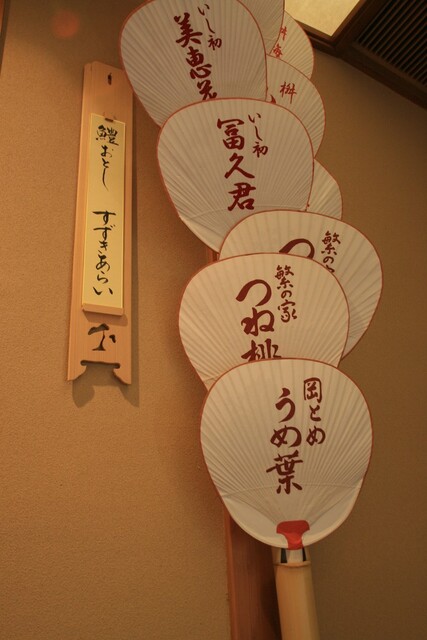 鱧おとし すずきあらい
いし初
美恵
いし初
冨久君
桝
繁の家
つ
繁の家
つね桃
岡とめ
うめ葉